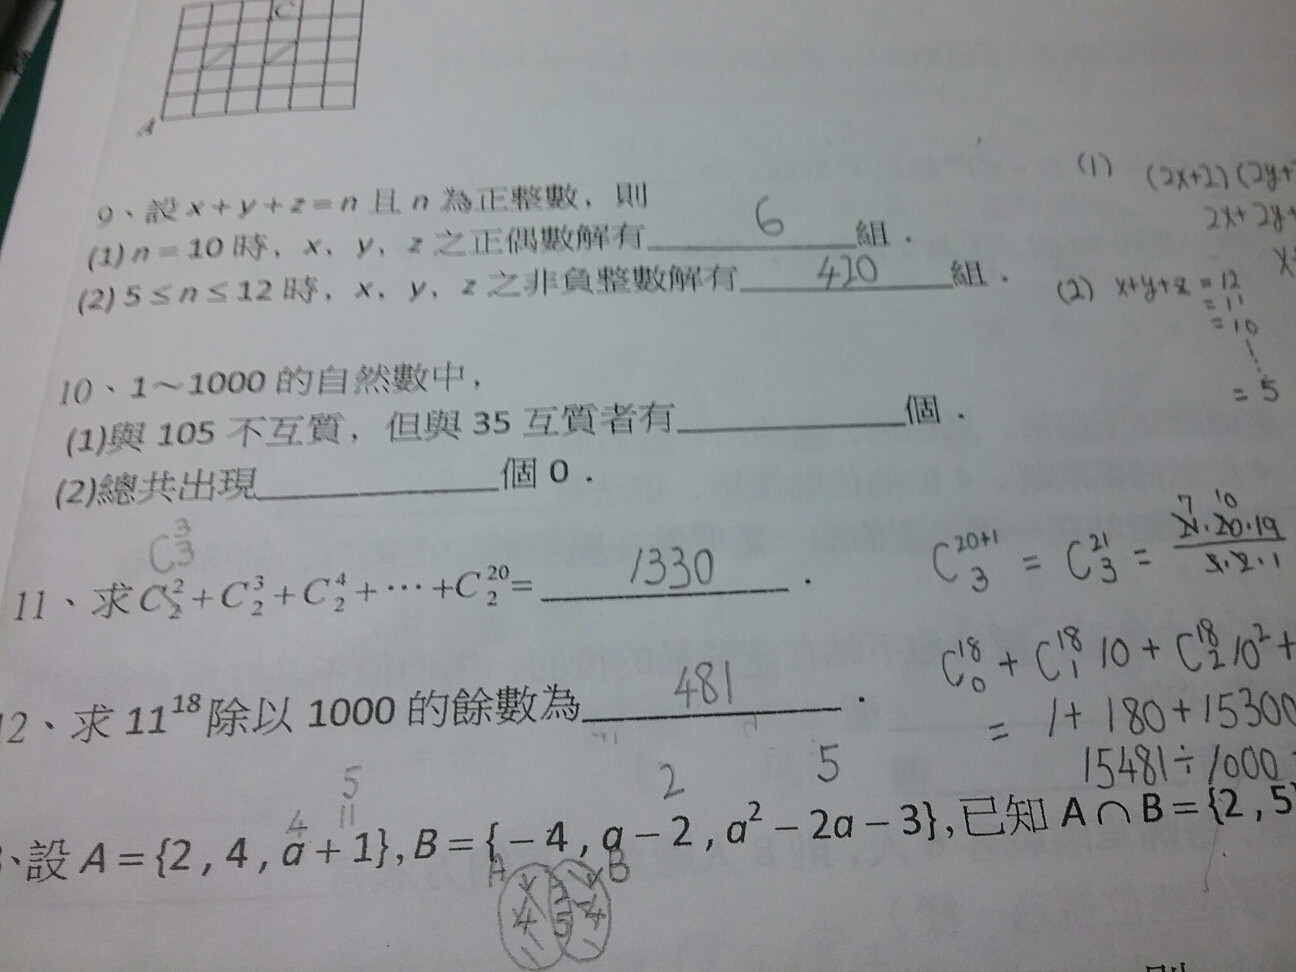 C
A
9、設 x+y+z=n 且 n 為正整數，則
(1) n=10 時，x，y，z 之正偶數解有 6 組．
(2) 5≤n≤12 時，x，y，z 之非負整數解有 420 組．
(1) (2x+2)(2y+
2x+2y+
(2) x+y+z =12
=11
=10
=5
10、1～1000 的自然數中，
(1)與 105 不互質，但與 35 互質者有________個．
(2)總共出現________個 0．
C³₃
11、求 C²₂+C³₂+C⁴₂+⋯+C²⁰₂= 1330 ．
C²⁰⁺¹₃ = C²¹₃ = 21·20·19 / 3·2·1
7 10
12、求 11¹⁸ 除以 1000 的餘數為 481 ．
C¹⁸₀ + C¹⁸₁ 10 + C¹⁸₂ 10² +
= 1 + 180 + 15300
15481÷1000
5 2 5
4 11
、設 A={2,4,a+1},B={−4,a−2,a²−2a−3},已知 A∩B={2,5
A B
4 2 5 -4